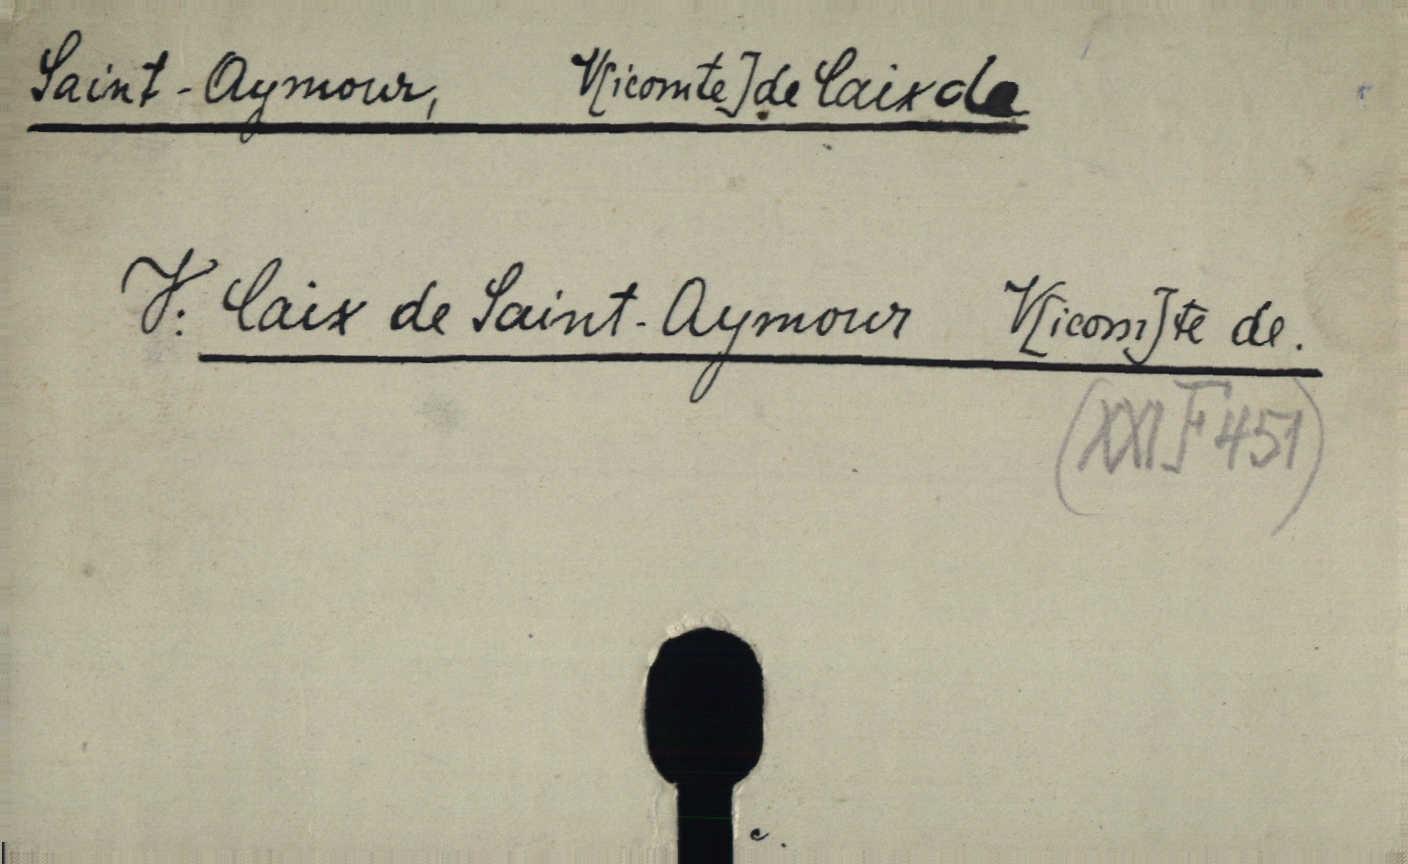 Saint-Aymour, V[icomte] de Caix de
V: Caix de Saint-Aymour V[icom]te de.
(XXI F 451)
c.